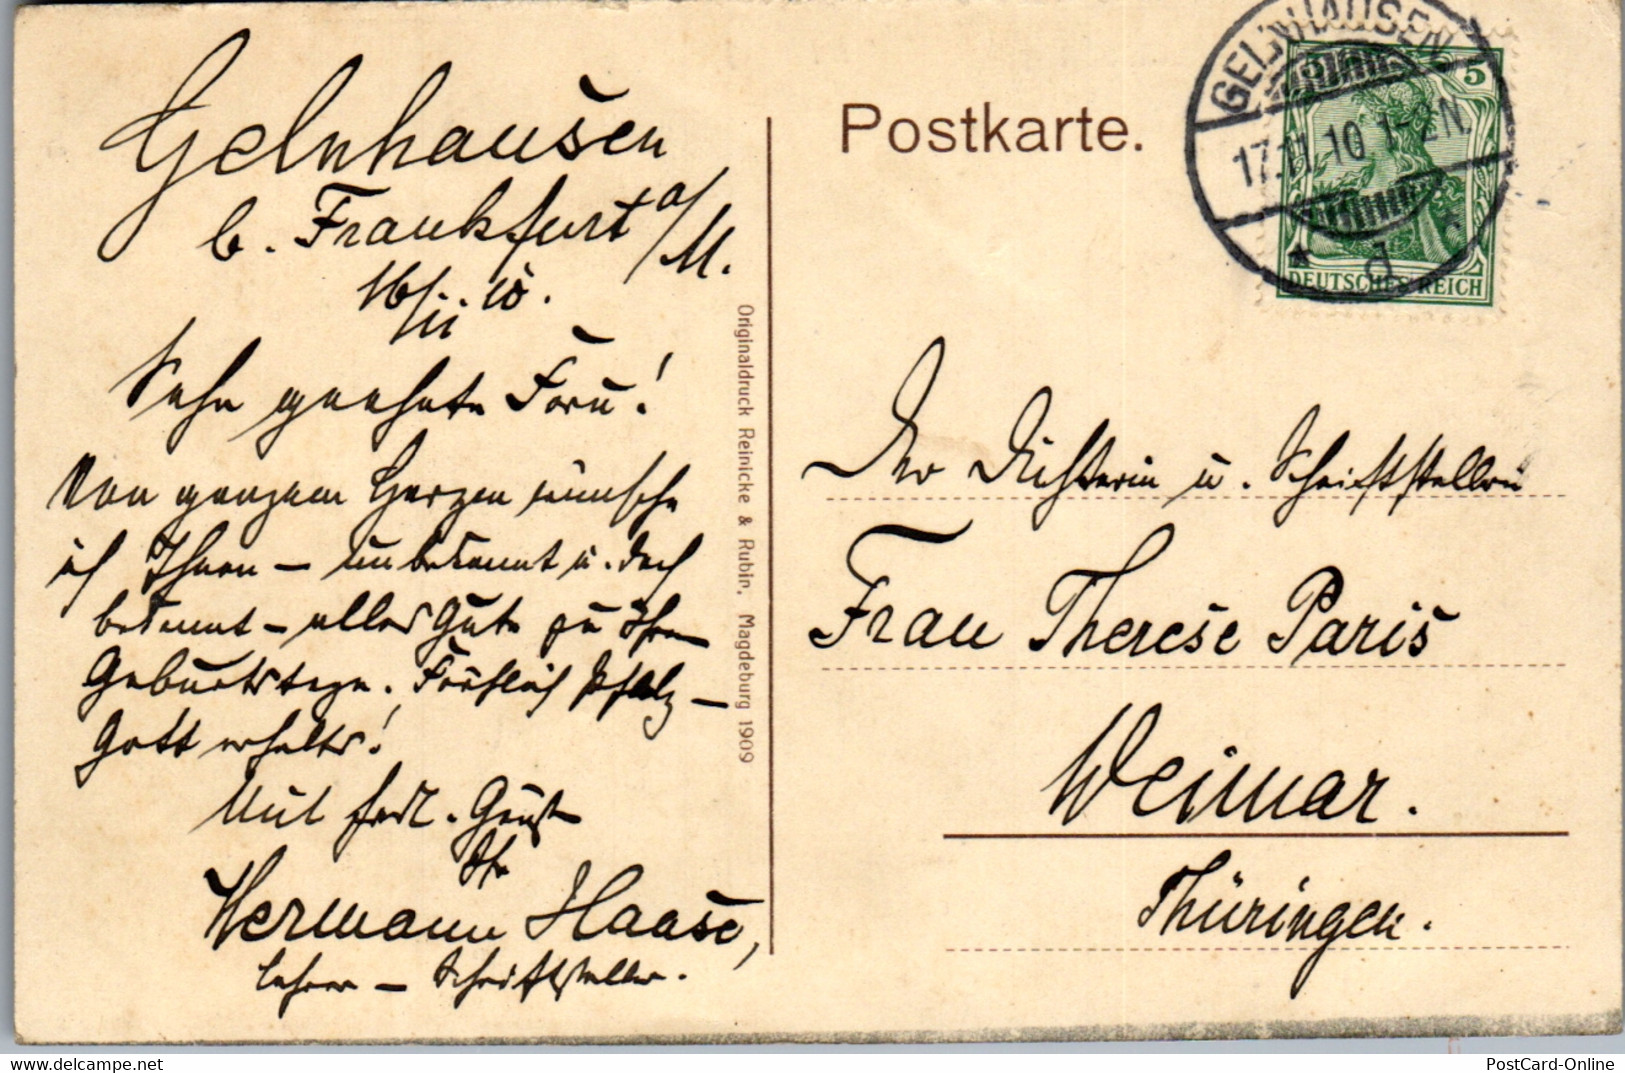 Gelnhausen
b. Frankfurt a/M.
16/11. 10.
Sehr geehrte Frau!
Von ganzem Herzen wünsche
ich Ihnen – unbekannt u. doch
bekannt – alles Gute zu Ihrem
Geburtstage. Fröhlich Pfalz –
Gott erhalts!
Mit frdl. Gruß
Ihr
Hermann Haase,
Lehrer – Schriftsteller.
Originaldruck Reinicke & Rubin, Magdeburg 1909
Postkarte.
GELNHAUSEN
17.11.10 1-2N.
* a *
5 5
DEUTSCHES REICH
Der Dichterin u. Schriftstellerin
Frau Therese Paris
Weimar.
Thüringen.
delcampe.net
PostCard-Online